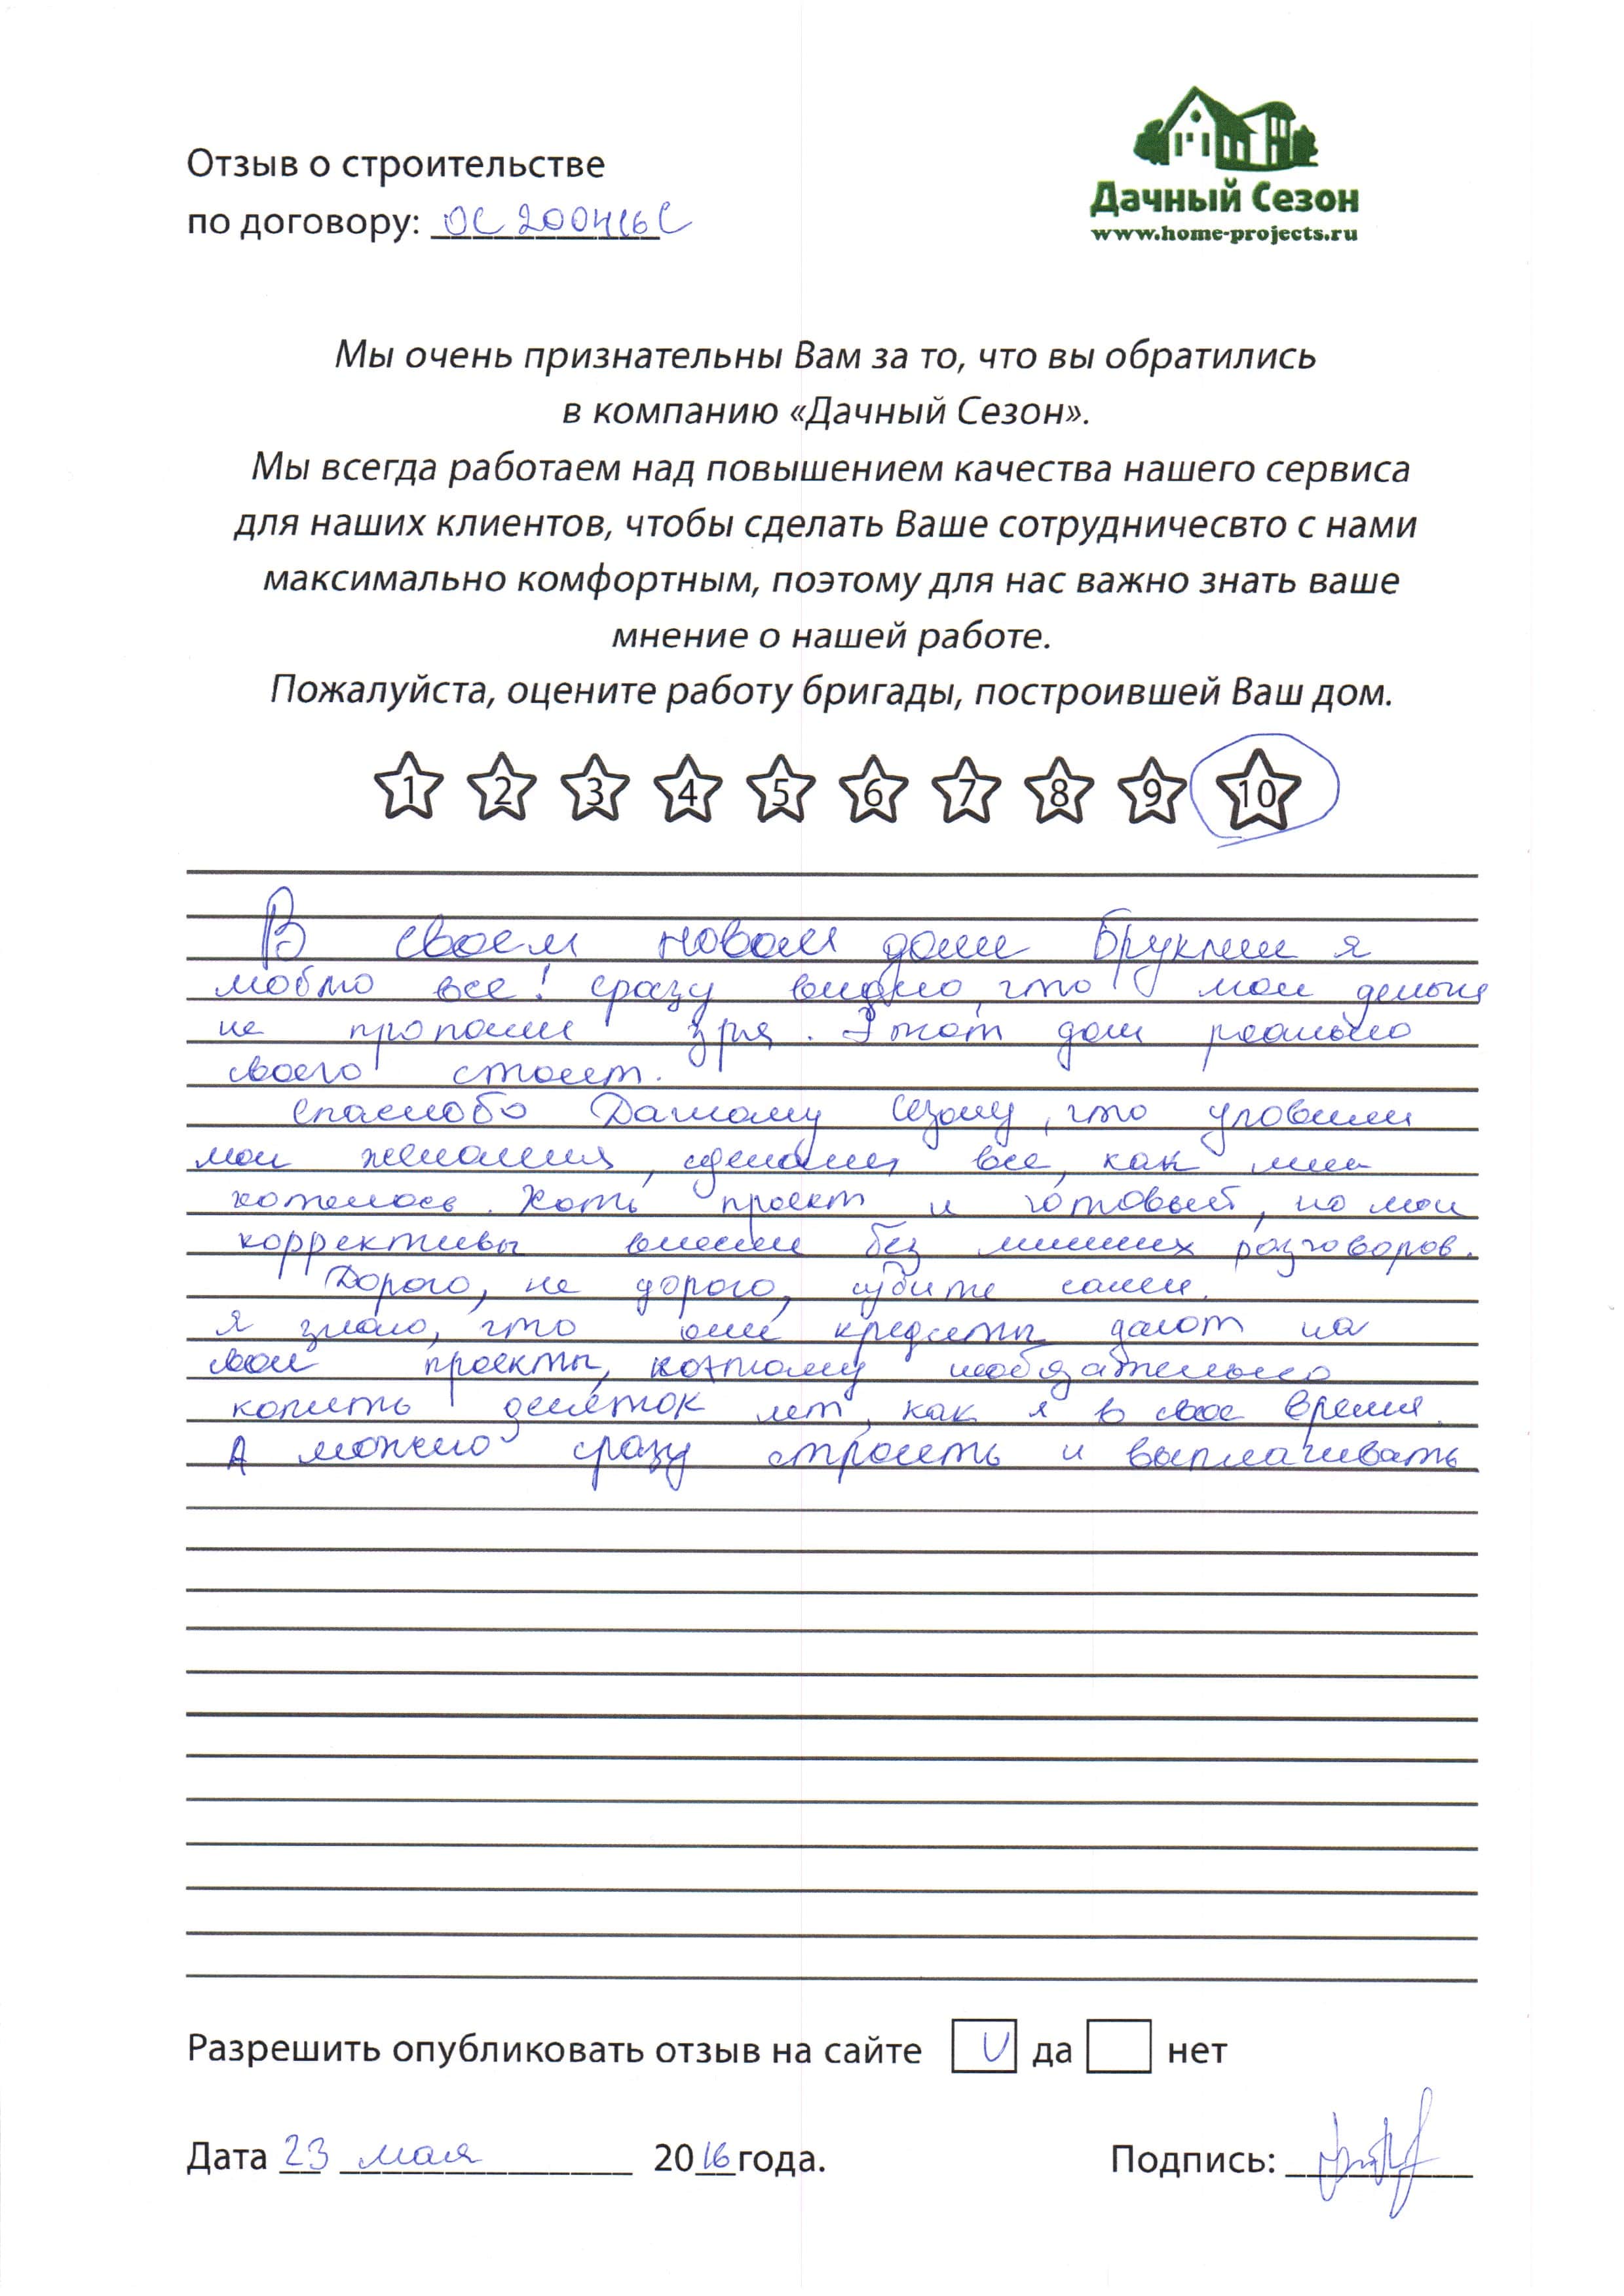 Отзыв о строительстве
по договору: ОС 200416С
Дачный Сезон
www.home-projects.ru
Мы очень признательны Вам за то, что вы обратились
в компанию «Дачный Сезон».
Мы всегда работаем над повышением качества нашего сервиса
для наших клиентов, чтобы сделать Ваше сотрудничесвто с нами
максимально комфортным, поэтому для нас важно знать ваше
мнение о нашей работе.
Пожалуйста, оцените работу бригады, построившей Ваш дом.
1 2 3 4 5 6 7 8 9 10
В своем новом доме Бруклин я
люблю все! Сразу видно, что мои деньги
не пропали зря. Этот дом реально
своего стоит.
Спасибо Дачному Сезону, что уловили
мои желания, сделали все, как мне
хотелось. Хоть проект и готовый, но мои
коррективы внесли без лишних разговоров.
Дорого, не дорого, судите сами.
Я знаю, что они кредиты дают на
свои проекты, поэтому необязательно
копить десяток лет, как я в свое время.
А можно сразу строить и выплачивать
Разрешить опубликовать отзыв на сайте V да нет
Дата 23 мая 2016 года. Подпись: